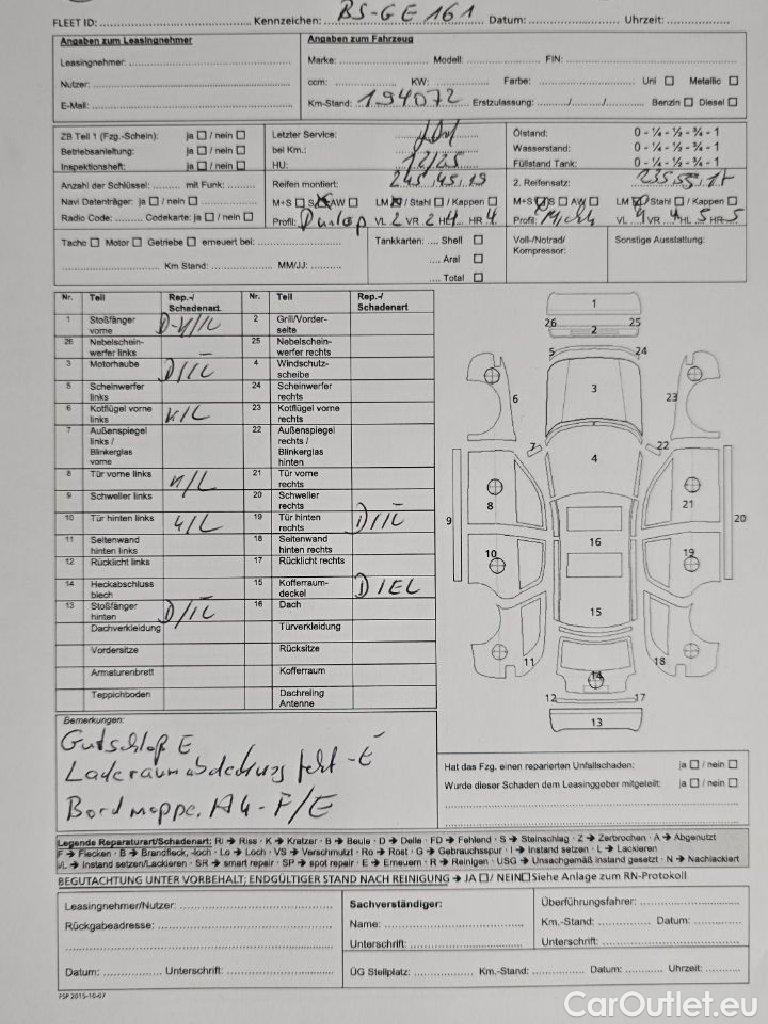 FLEET ID: Kennzeichen: BS-GE 161 Datum: Uhrzeit:
Angaben zum Leasingnehmer
Leasingnehmer:
Nutzer:
E-Mail:
Angaben zum Fahrzeug
Marke: Modell: FIN:
ccm: KW: Farbe: Uni Metallic
Km-Stand: 194072 Erstzulassung: / / Benzin Diesel
ZB Teil 1 (Fzg.-Schein): ja / nein
Betriebsanleitung: ja / nein
Inspektionsheft: ja / nein
Letzter Service:
bei Km.:
HU: 12/25
Ölstand: 0 - ¼ - ½ - ¾ - 1
Wasserstand: 0 - ¼ - ½ - ¾ - 1
Füllstand Tank: 0 - ¼ - ½ - ¾ - 1
Anzahl der Schlüssel: mit Funk:
Navi Datenträger: ja / nein
Radio Code: Codekarte: ja / nein
Reifen montiert: 245, 45, 19
M+S S AW LM / Stahl / Kappen
Profil: Dunlop VL 2 VR 2 HL 4 HR 4
2. Reifensatz: 235, 55, 17
M+S S AW LM / Stahl / Kappen
Profil: VL 4 VR 4 HL 5 HR 5
Tacho Motor Getriebe erneuert bei:
Km Stand: MM/JJ:
Tankkarten: Shell
Aral
Total
Voll-/Notrad/
Kompressor:
Sonstige Ausstattung:
Nr. Teil Rep.-/ Schadenart Nr. Teil Rep.-/ Schadenart
1 Stoßfänger vorne 2 Grill/Vorder- seite
26 Nebelschein- werfer links 25 Nebelschein- werfer rechts
3 Motorhaube 4 Windschutz- scheibe
5 Scheinwerfer links 24 Scheinwerfer rechts
6 Kotflügel vorne links K/L 23 Kotflügel vorne rechts
7 Außenspiegel links / Blinkerglas vorne 22 Außenspiegel rechts / Blinkerglas hinten
8 Tür vorne links K/L 21 Tür vorne rechts
9 Schweller links 20 Schweller rechts
10 Tür hinten links 19 Tür hinten rechts
11 Seitenwand hinten links 18 Seitenwand hinten rechts
12 Rücklicht links 17 Rücklicht rechts
14 Heckabschluss blech 15 Kofferraum- deckel D/EL
13 Stoßfänger hinten 16 Dach
Dachverkleidung Türverkleidung
Vordersitze Rücksitze
Armaturenbrett Kofferraum
Teppichboden Dachreling Antenne
1
26 25
2
5 24
3
6 23
7 22
4
8 21
9 20
16
10 19
15
11 18
14
12 17
13
Bemerkungen:
Gurtschloß E
Laderaumabdeckung fehlt - E
Bordmappe. A4 - F/E
Hat das Fzg. einen reparierten Unfallschaden: ja / nein
Wurde dieser Schaden dem Leasinggeber mitgeteilt: ja / nein
Legende Reparaturart/Schadenart: RI → Riss · K → Kratzer · B → Beule · D → Delle · FD → Fehlend · S → Steinschlag · Z → Zerbrochen · A → Abgenutzt
F → Flecken · B → Brandfleck, -loch · Lo → Loch · VS → Verschmutzt · Ro → Rost · G → Gebrauchsspur · I → Instand setzen · L → Lackieren
I/L → Instand setzen/Lackieren · SR → smart repair · SP → spot repair · E → Erneuern · R → Reinigen · USG → Unsachgemäß instand gesetzt · N → Nachlackiert
BEGUTACHTUNG UNTER VORBEHALT; ENDGÜLTIGER STAND NACH REINIGUNG → JA / NEIN Siehe Anlage zum RN-Protokoll
Leasingnehmer/Nutzer:
Rückgabeadresse:
Datum: Unterschrift:
Sachverständiger:
Name:
Unterschrift:
Überführungsfahrer:
Km.-Stand: Datum:
Unterschrift:
ÜG Stellplatz: Km.-Stand: Datum: Uhrzeit:
CarOutlet.eu